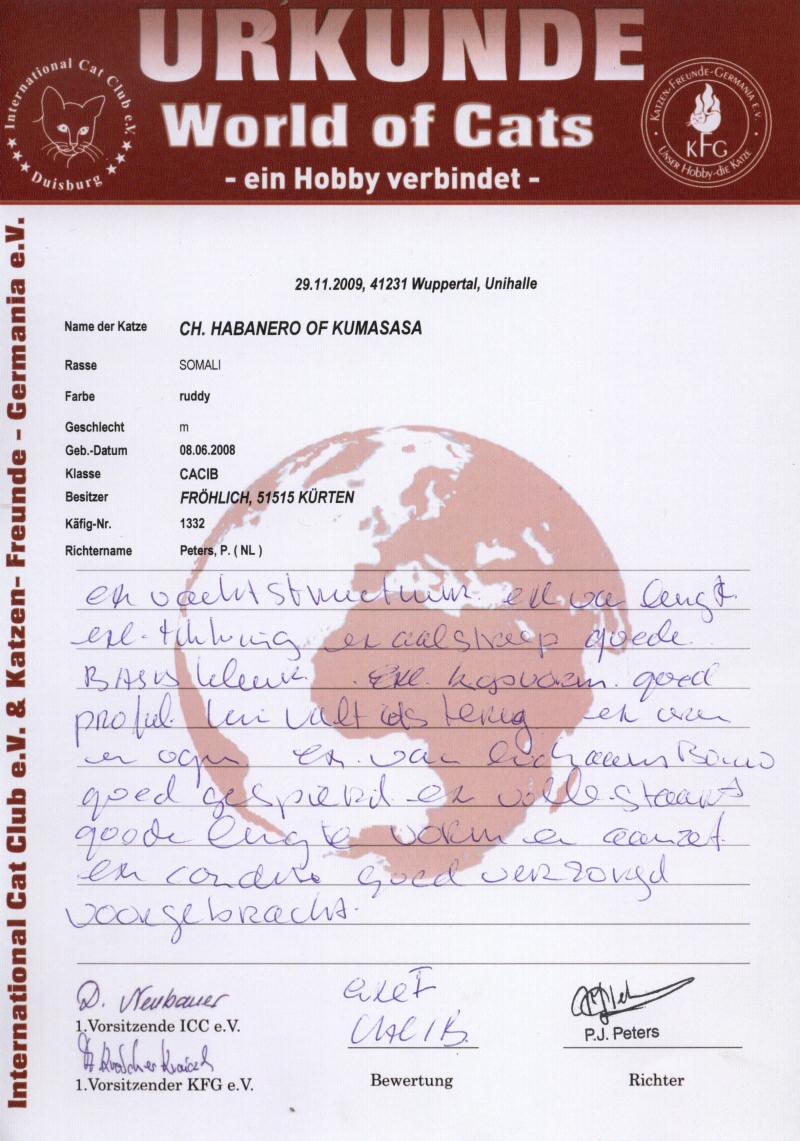 URKUNDE
World of Cats
- ein Hobby verbindet -
International Cat Club e.V.
Duisburg
KATZEN-FREUNDE-GERMANIA E.V.
KFG
UNSER HOBBY-DIE KATZE
International Cat Club e.V. & Katzen- Freunde - Germania e.V.
29.11.2009, 41231 Wuppertal, Unihalle
Name der Katze CH. HABANERO OF KUMASASA
Rasse SOMALI
Farbe ruddy
Geschlecht m
Geb.-Datum 08.06.2008
Klasse CACIB
Besitzer FRÖHLICH, 51515 KÜRTEN
Käfig-Nr. 1332
Richtername Peters, P. ( NL )
ex vachtstructuur ex van lengte
exl. ex aalstreep goede
BASIS kleur. Exl. kopvorm. goed
profiel. kin valt iets terug ex oren
en ogen ex. van lichaamsBouw
goed gespierd ex volle staart
goede lengte vorm en aanzet.
ex conditie goed verzorgd
voorgebracht.
D. Neubauer
1.Vorsitzende ICC e.V.
1.Vorsitzender KFG e.V.
CACIB.
Bewertung
P.J. Peters
Richter